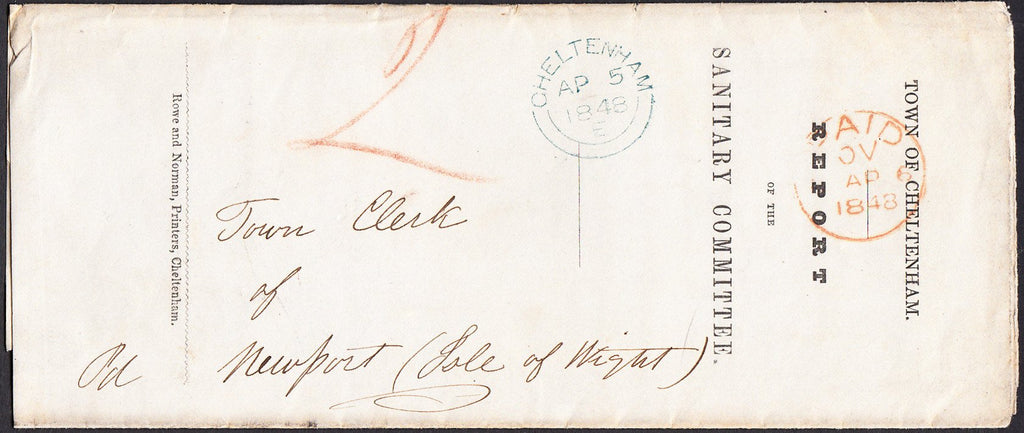 TOWN OF CHELTENHAM.
REPORT
OF THE
SANITARY COMMITTEE.
Rowe and Norman, Printers, Cheltenham.
CHELTENHAM
AP 5
1848
E
PAID
AP 6
1848
2
Town Clerk
of
Pd Newport (Isle of Wight)